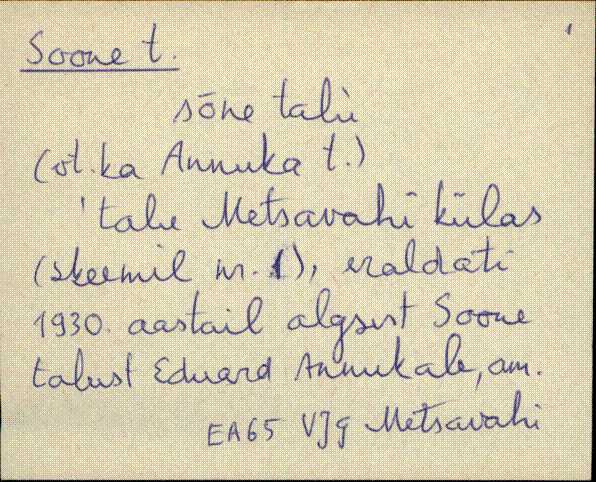 Soone t.
sōne talu
(vt. ka Annuka t.)
'talu Metsavahi külas
(skeemil nr. 1), eraldati
1930. aastail algsest Soone
talust Eduard Annukale, am.
EA65 VJg Metsavahi